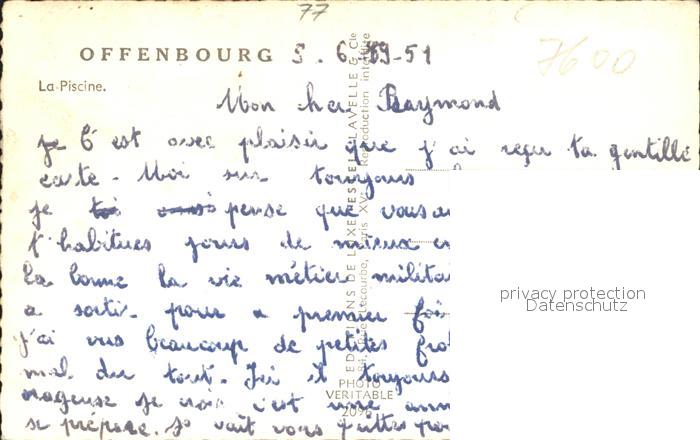 77
OFFENBOURG 5.6.1951
7600
La Piscine.
Mon her Raymond
Je C est avec plaisir que j'ai reçu ta gentille
carte. Moi sui tourjours
je pense que vous
t'habitues jours de mieux
la bonne la vie métier militai
a sortir pour a premier foi
j'ai vus beaucoup de petites
mal du tout. Ici il toujours
orageuse je crois c'est une ann
se prépare. Je vait vous quittes
EDITIONS DE LUXE ESTEL LAVELLE & Cie
Rue Lecourbe, Paris XV Reproduction interdite
PHOTO
VERITABLE
privacy protection
Datenschutz